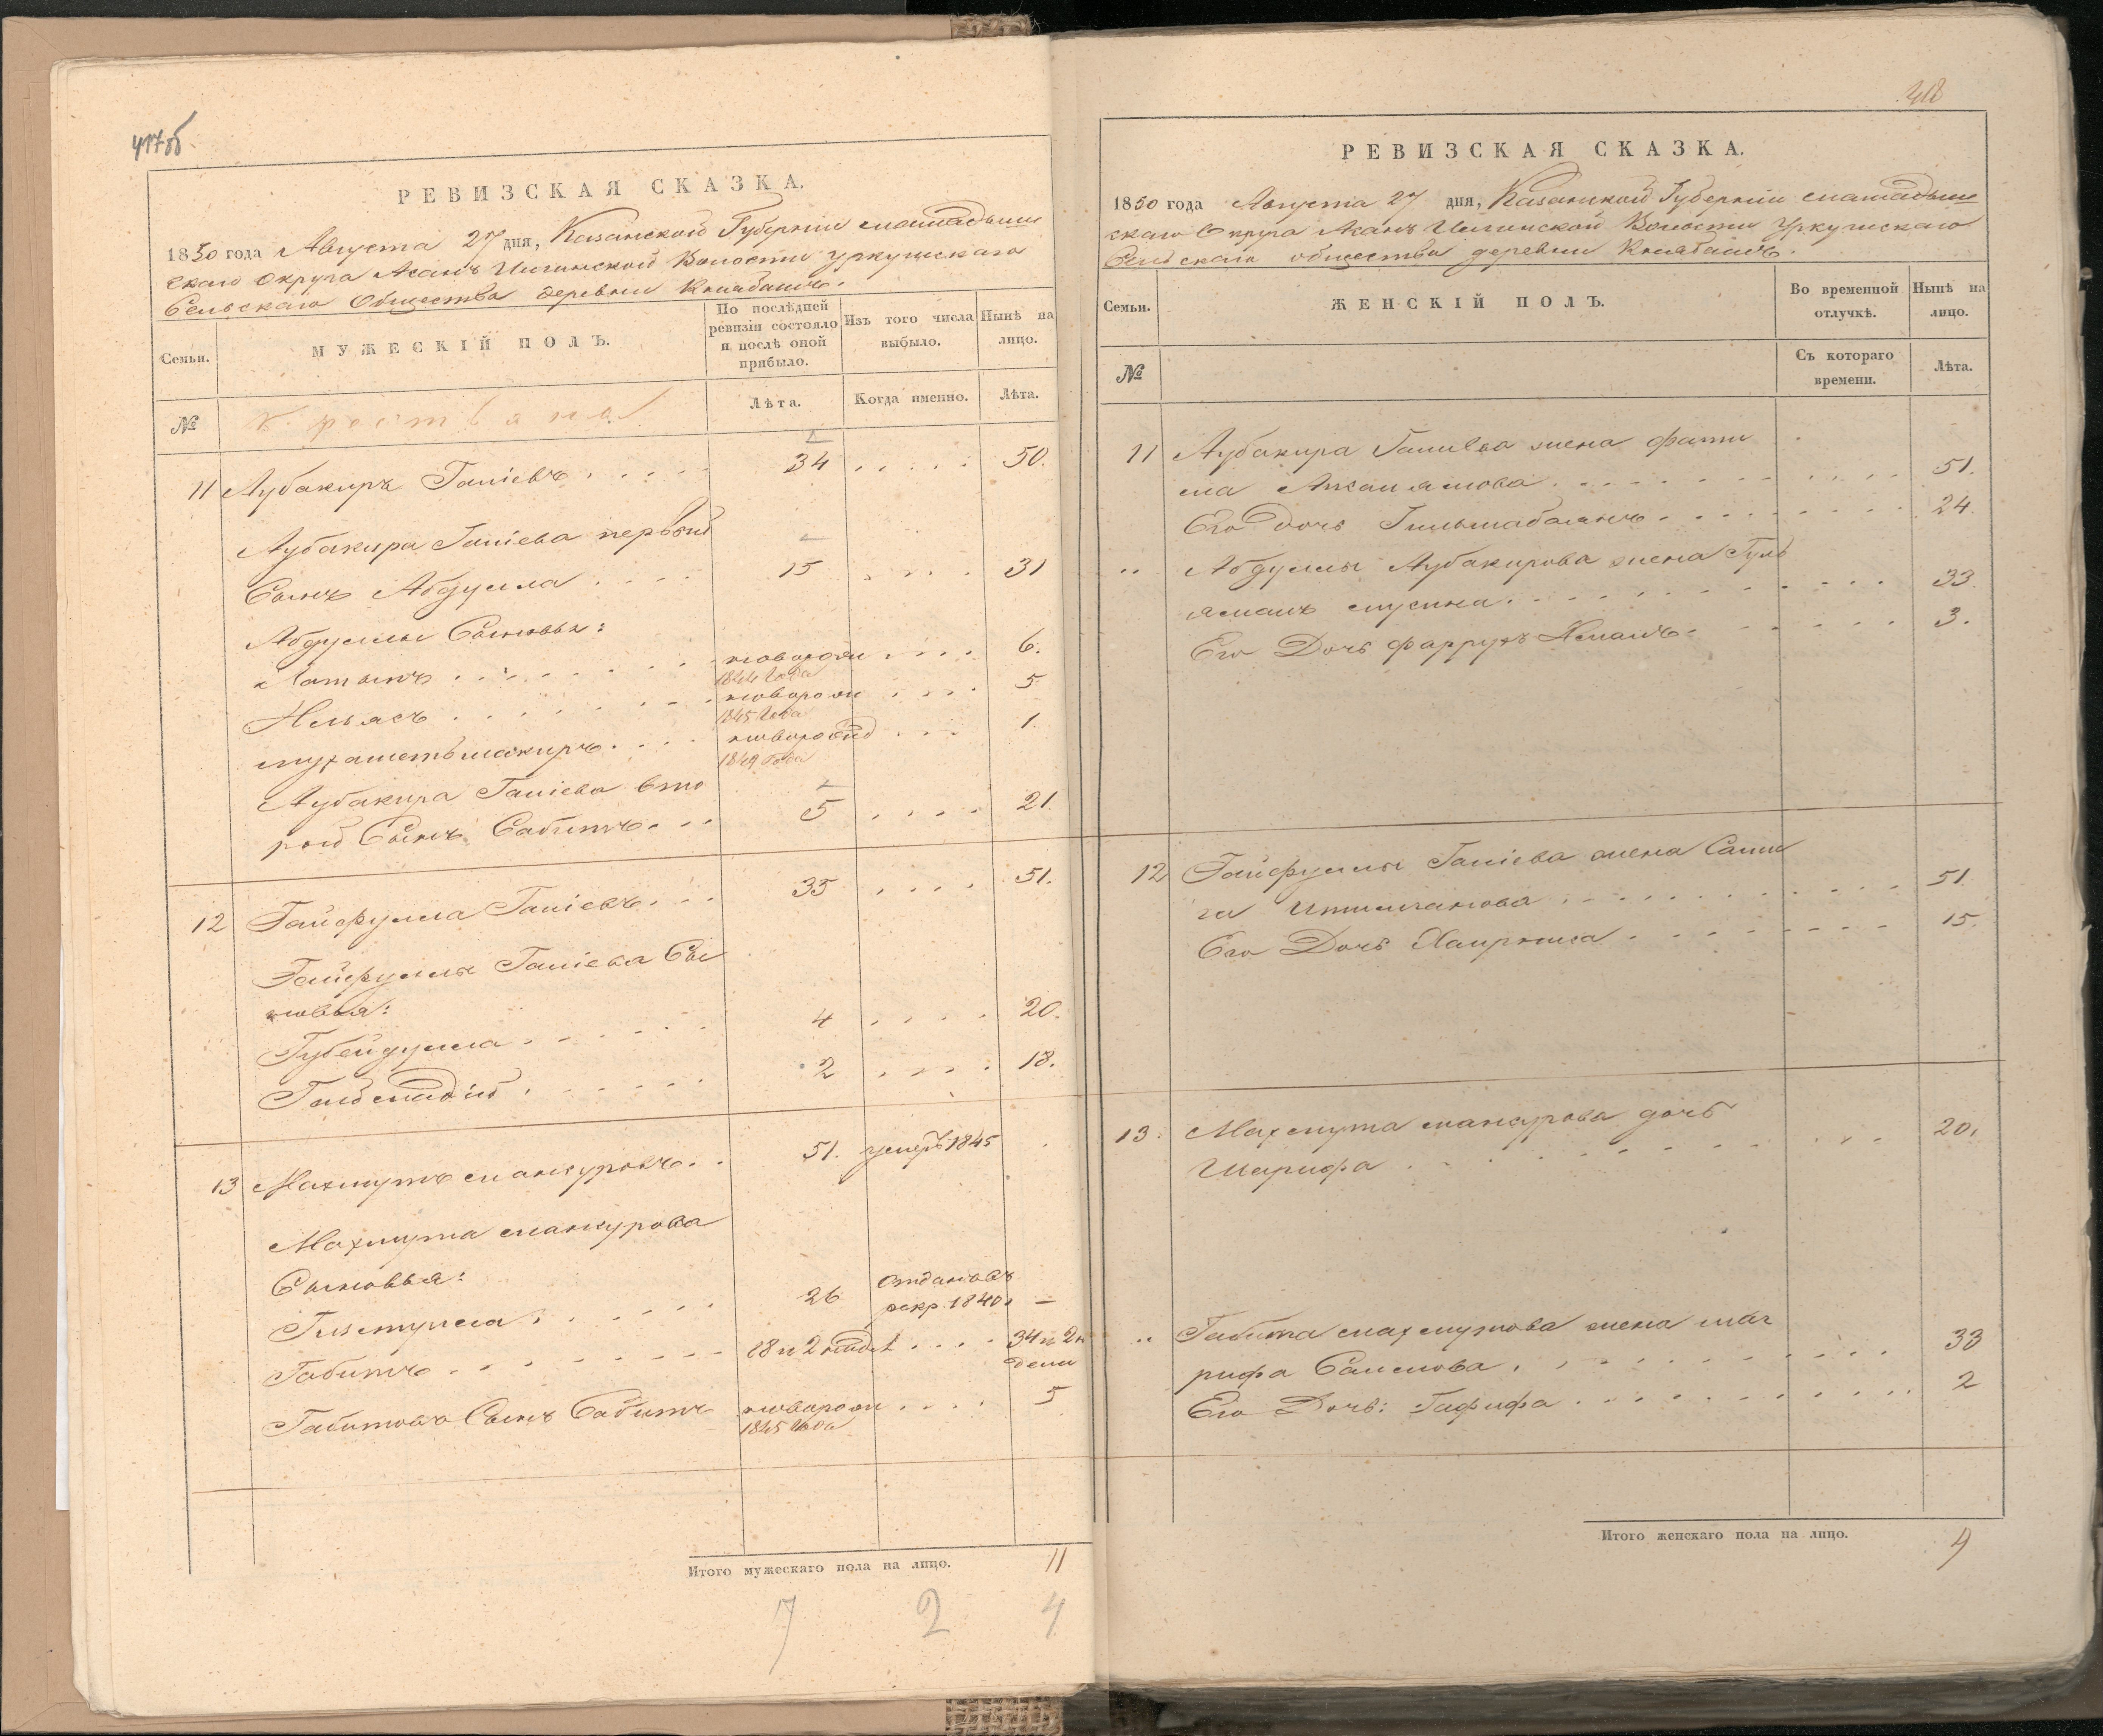 417об.
РЕВИЗСКАЯ СКАЗКА.
1850 года Августа 27 дня, Казанской Губерніи мамадыш
скаго округа Асанъ Илгинской Волости Уркушскаго
Сельскаго Общества деревни Клябашъ.
Семьи.
МУЖЕСКІЙ ПОЛЪ.
По послѣдней ревизіи состояло и послѣ оной прибыло.
Изъ того числа выбыло.
Нынѣ на лицо.
№
крестьяне
Лѣта.
Когда именно.
Лѣта.
11 Аубакиръ Ганіевъ 34 50.
Аубакира Ганіева первый
Сынъ Абдулла 15 31
Абдуллы Сыновья:
Латыпъ новорожд 1844 года 6.
Ильясъ новорож 1845 года 5
мухаметьшакиръ новорожд 1849 года 1.
Аубакира Ганіева вто
рой Сынъ Сабитъ 5 21.
12 Гайфулла Ганіевъ 35 51.
Гайфуллы Ганіева Сы
новья:
Губейдулла 4 20.
2 18.
13 Махмутъ мансуровъ 51. умеръ 1845
Махмута мансурова
Сыновья:
26 отданъ въ рекр. 1840. —
Габитъ 18 и 2 недѣл 34 и 2 недели
Габитовъ Сынъ Сабитъ новорож 1845 года 5
Итого мужескаго пола на лицо. 11
7 2 4
418
РЕВИЗСКАЯ СКАЗКА.
1850 года Августа 27 дня, Казанской Губерніи мамадыш
скаго Округа Асанъ Илгинской Волости Уркушскаго
Сельскаго общества деревни Клябашъ.
Семьи.
ЖЕНСКІЙ ПОЛЪ.
Во временной отлучкѣ.
Нынѣ на лицо.
№
Съ котораго времени.
Лѣта.
11 Аубакира Ганиева жена фати
ма 51.
Его дочь 24
Абдуллы Аубакирова жена Гуль
ямалъ мусина 33.
Его Дочь фаррухъ Ямалъ 3.
12 Гайфуллы Ганіева жена Сали
ха 51
Его Дочь Хаирниса 15.
13. Махмута мансурова дочь
Шарифа 20.
Габита махмутова жена ша
рифа Салимова 33
Его Дочь: Гафифа 2
Итого женскаго пола на лицо. 9